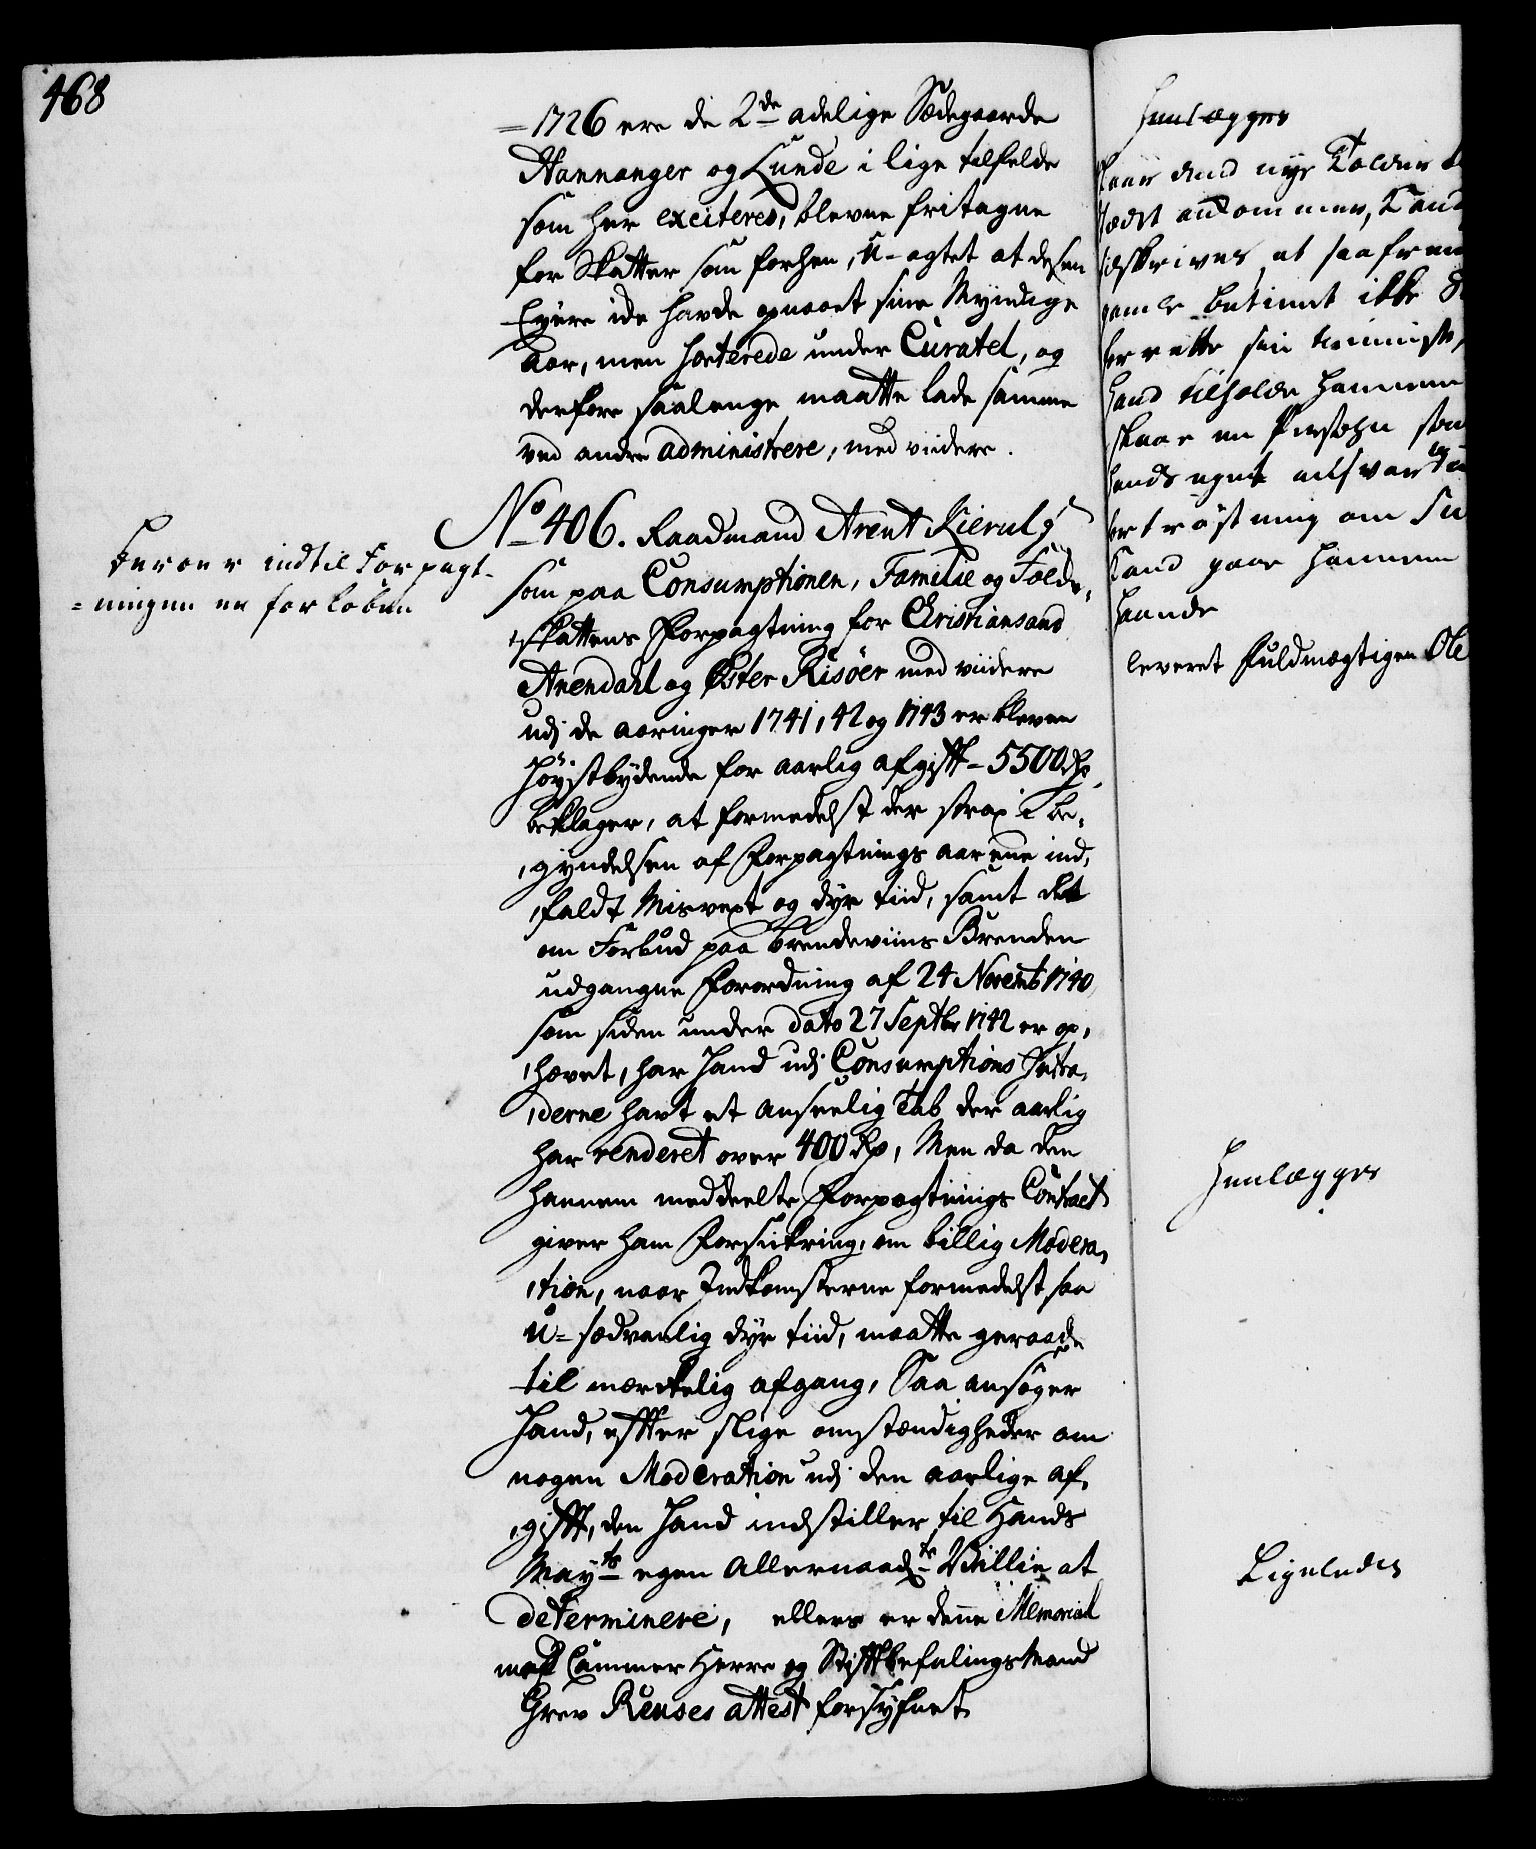 468
= 1726 ere de 2de adelige Sædegaarde
Hannanger og Lunde i lige tilfelde
som her exciteres, blevne fritagne
for Skatter som forhen, u-agtet at desen
Eyere ide havde opnaaet sine Myndige
Aar, men sorterede under Curatel, og
derfore saalenge maatte lade samme
ved andre administrere, med viidere.
No 406. Raadmand Arent Kierulf
som paa Consumptionen, Familie og Folde,
,skattens Forpagtning for Christiansand
Arendahl og Øster Risöer med viidere
udj de aaringer 1741, 42 og 1743 er bleven
Höystbydende for aarlig afgifft = 5500 Rd,
beklager, at formedelst der strax i be,
,gyndelsen af Forpagtnings aarene ind,
,faldt Misvext og dyr tiid, samt det
om Forbud paa Brendeviins Brenden
udgangne Forordning af 24 Novemb 1740
som siden under dato 27 Septbr 1742 er op,
,hævet, har Hand udj Consumptions Intra,
,derne havt et anseelig Tab der aarlig
har renderet over 400 Rd, Men da den
hannem meddeelte Forpagtnings Contract
giver ham Forsickring, om billig Modera,
,tion, naar Indkomsterne formedelst saa
u=sædvanlig dyr tiid, maatte geraade
til merckelig afgang, Saa ansöger
Hand, effter slige omstændigheder om
nogen Moderation udj den aarlige af,
,gifft, den Hand indstiller til Hands
Mayts egen Allernaadte Villie at
determinere, ellers er denne Memorial
med Cammer Herre og StifftbefalingsMand
Grev Reuses attest forsÿfnet
Beroer indtil Forpagt-
=ningen er forloben
Henlægges
Naar dend nye Tolder
at saafrem
gamle betient ikke
Hand tilholde hannem
skaar en Persohn som
hands egnt ansvar
Tand gaae hannem
haande
leveret Fuldmægtigen Ole
Henlægges
Ligeledes